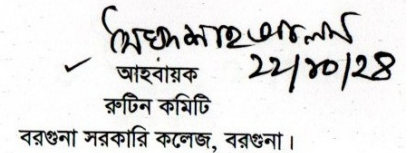 ২২/১০/২৪
আহবায়ক
রুটিন কমিটি
বরগুনা সরকারি কলেজ, বরগুনা।